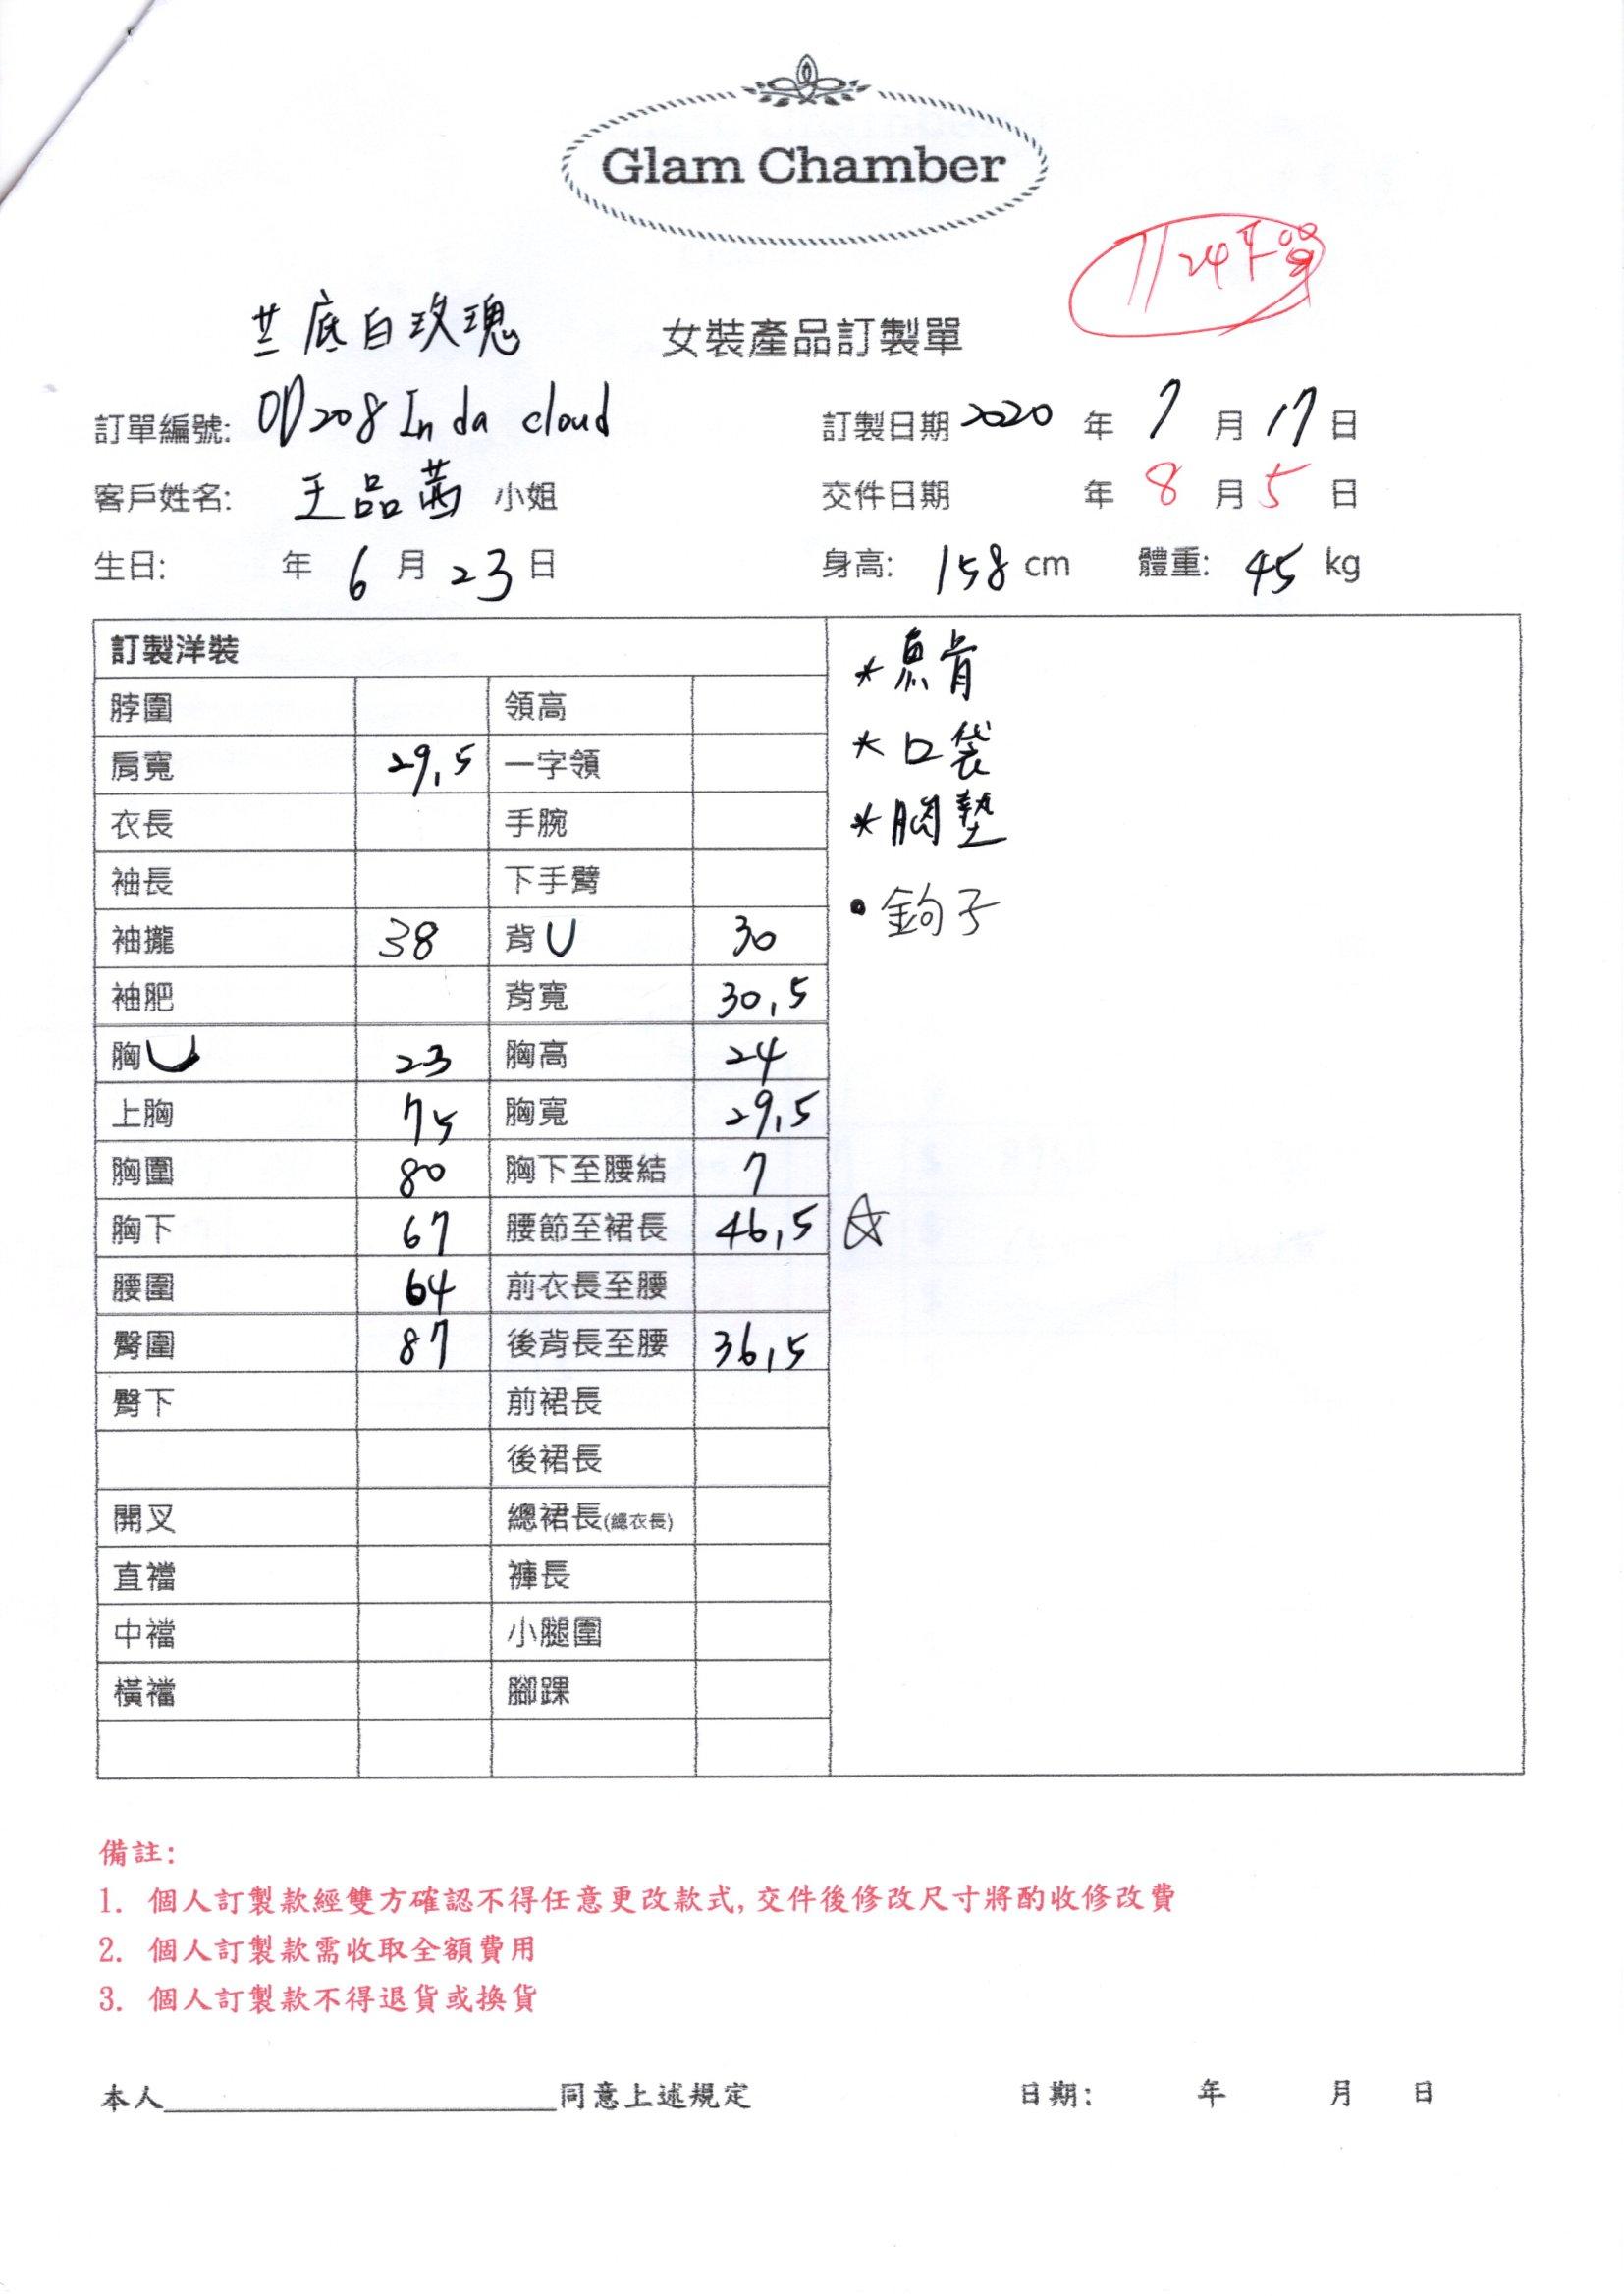 Glam Chamber
7/24
底白玫瑰
女裝產品訂製單
訂單編號: OD208 In da cloud 訂製日期 2020 年 7 月 17 日
客戶姓名: 王品茜 小姐 交件日期 年 8 月 5 日
生日: 年 6 月 23 日 身高: 158 cm 體重: 45 kg
訂製洋裝
脖圍 領高
肩寬 29,5 一字領
衣長 手腕
袖長 下手臂
袖攏 38 背U 30
袖肥 背寬 30,5
胸U 23 胸高 24
上胸 75 胸寬 29,5
胸圍 80 胸下至腰結 7
胸下 67 腰節至裙長 46,5 ☆
腰圍 64 前衣長至腰
臀圍 87 後背長至腰 36,5
臀下 前裙長
後裙長
開叉 總裙長(總衣長)
直襠 褲長
中襠 小腿圍
橫襠 腳踝
*魚骨
*口袋
*胸墊
•鉤子
備註:
1. 個人訂製款經雙方確認不得任意更改款式, 交件後修改尺寸將酌收修改費
2. 個人訂製款需收取全額費用
3. 個人訂製款不得退貨或換貨
本人____________________同意上述規定 日期: 年 月 日